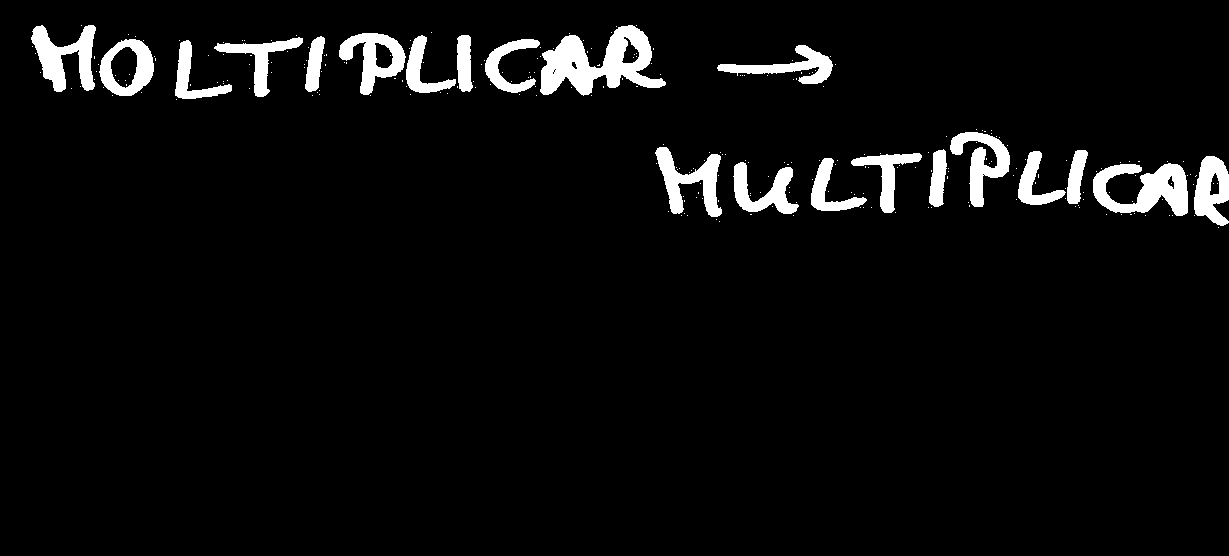 MOLTIPLICAR →
MULTIPLICAR